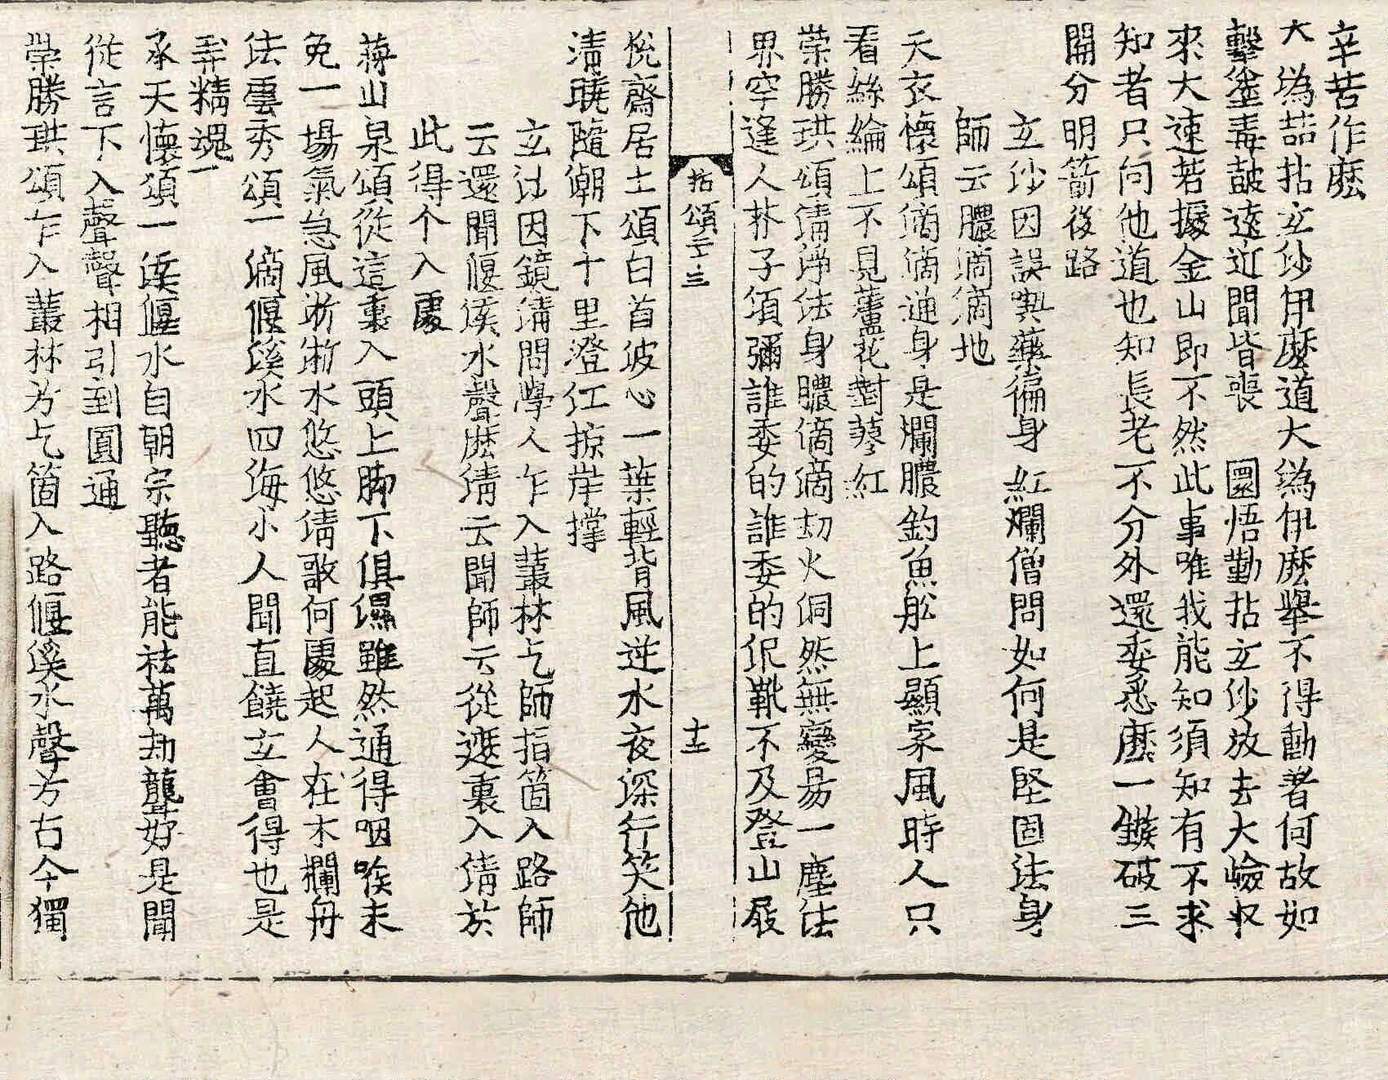 辛苦作麽
大溈喆拈玄沙伊麽道大溈伊麽擧不得動著何故如
擊塗毒皷遠近聞皆喪　圜悟勤拈玄沙放去大嶮収
來大速若據金山即不然此事唯我能知須知有不求
知者只向他道也知長老不分外還委悉麽一鏃破三
開分明箭後路
玄沙因誤與藥徧身紅爛僧問如何是堅固法身
師云膿滴滴地
天衣懷頌滴滴通身是爛膿釣魚舩上顯家風時人只
看絲綸上不見蘆花對蓼紅
崇勝珙頌淸淨法身膿滴滴刧火洞然無變易一塵法
界空逢人林子頌彌誰委的誰委的伲靴不及登山屐
拈頌二十三
十二
悅齋居士頌白首波心一葉輕背風逆水夜深行笑他
淸曉隨潮下十里澄江掠岸撑
玄沙因鏡淸問學人乍入叢林乞師指箇入路師
云還聞偃溪水聲麽淸云聞師云從遮裏入淸於
此得个入處
蔣山泉頌從這裏入頭上脚下俱濕雖然通得咽喉未
免一場氣急風淅淅水悠悠淸歌何處起人在木欄舟
法雲秀頌一滴偃溪水四海小人聞直饒玄會得也是
弄精魂
承天懷頌一溪偃水自朝宗聽者能袪萬劫聾好是聞
從言下入聲聲相引到圓通
崇勝珙頌乍入叢林兮乞箇入路偃溪水聲兮古今獨